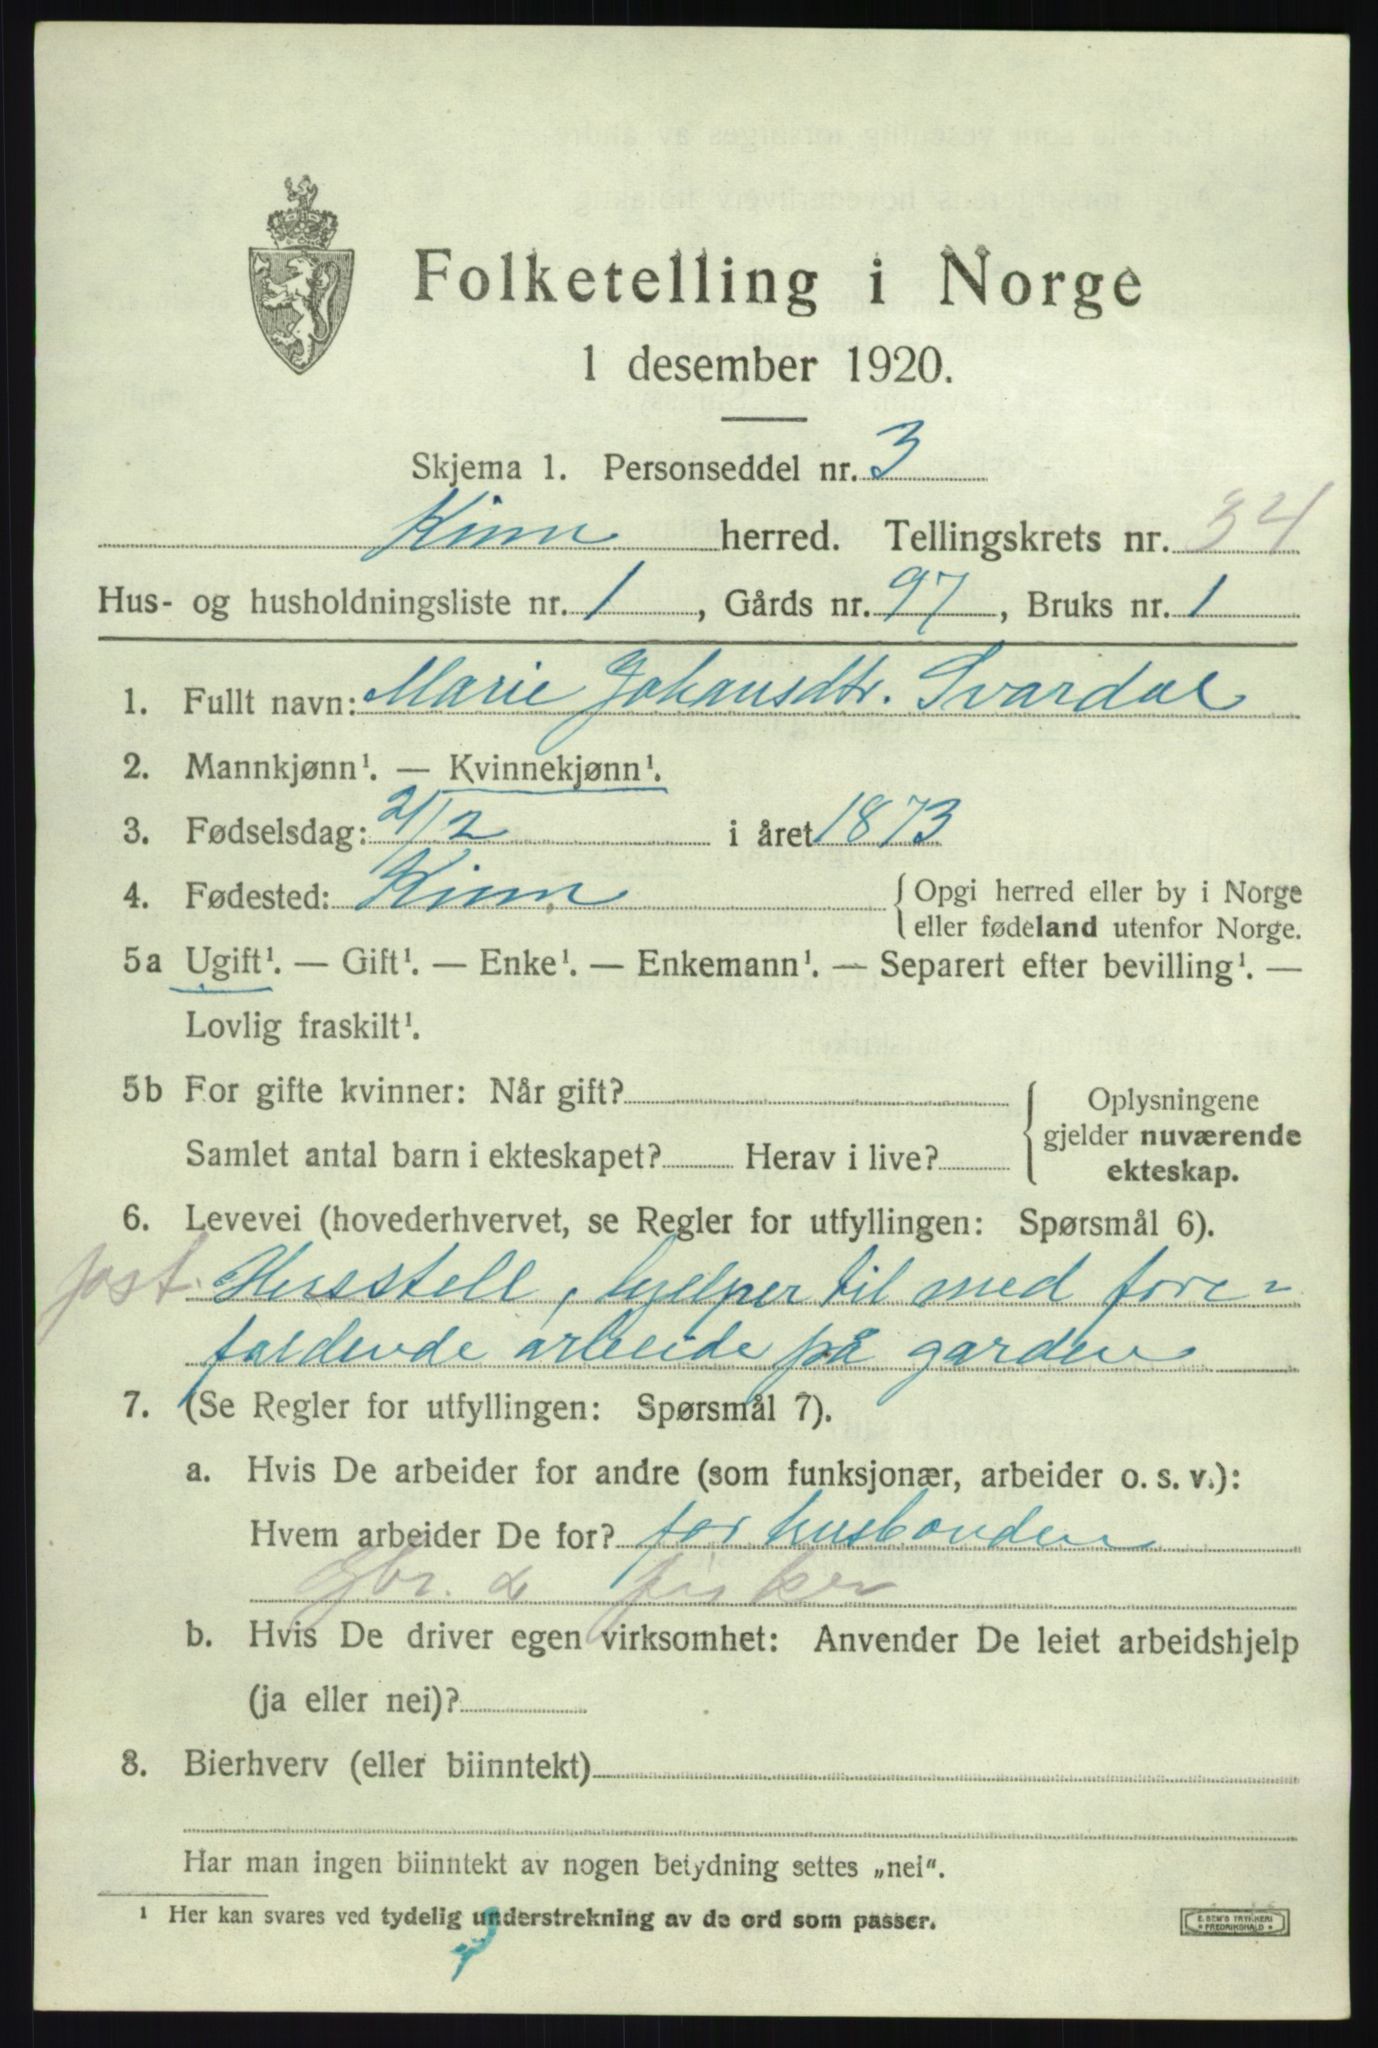 Folketelling i Norge
1 desember 1920.
Skjema 1. Personseddel nr. 3
Kinn herred. Tellingskrets nr. 34
Hus- og husholdningsliste nr. 1, Gårds nr. 97, Bruks nr. 1
1. Fullt navn: Marie Johansdtr. Svardal
2. Mannkjønn¹. — Kvinnekjønn¹.
3. Fødselsdag: 21/2 i året 1873
4. Fødested: Kinn { Opgi herred eller by i Norge
eller fødeland utenfor Norge.
5a Ugift¹. — Gift¹. — Enke¹. — Enkemann¹. — Separert efter bevilling¹. —
Lovlig fraskilt¹.
5b For gifte kvinner: Når gift? { Oplysningene
gjelder nuværende
Samlet antal barn i ekteskapet? Herav i live? ekteskap.
6. Levevei (hovederhvervet, se Regler for utfyllingen: Spørsmål 6).
Husstell, hjelper til med fore-
faldende arbeide på garden
7. (Se Regler for utfyllingen: Spørsmål 7).
a. Hvis De arbeider for andre (som funksjonær, arbeider o. s. v.):
Hvem arbeider De for? for husbonden
Gbr. & fisker
b. Hvis De driver egen virksomhet: Anvender De leiet arbeidshjelp
(ja eller nei)?
8. Bierhverv (eller biinntekt)
Har man ingen biinntekt av nogen betydning settes „nei“.
¹ Her kan svares ved tydelig understrekning av de ord som passer.
E. SEM'S TRYKKERI
* FREDRIKSHALD *